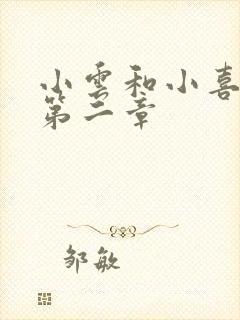 小雪和小喜
第二章
邹敏